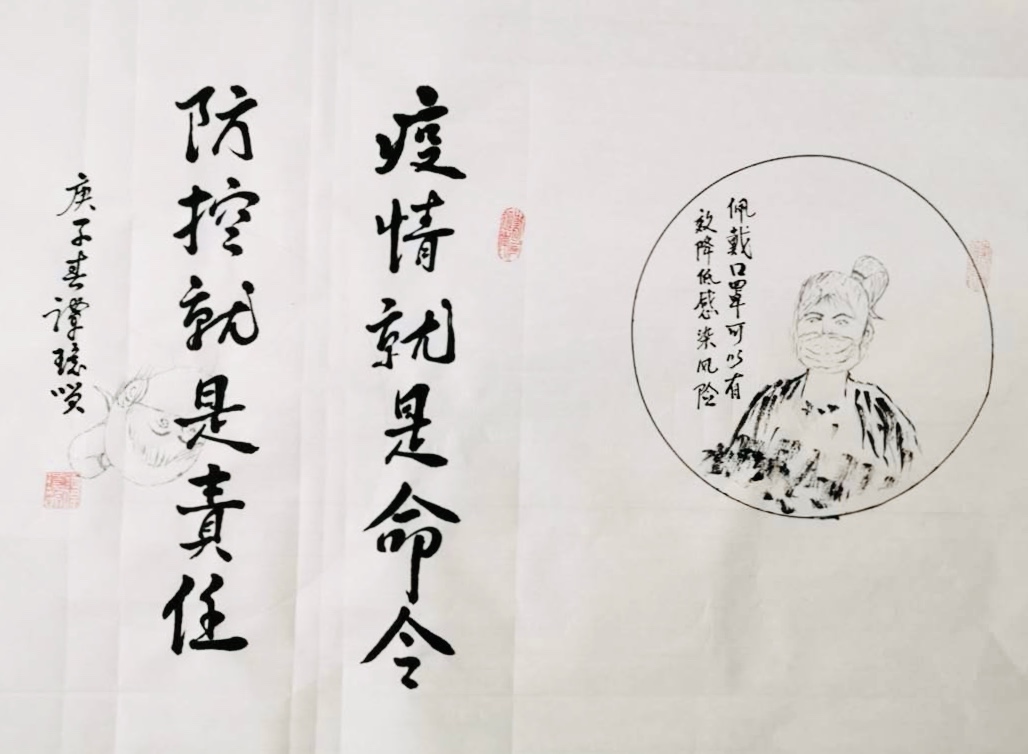 佩戴口罩可以有
效降低感染风险
疫情就是命令
防控就是責任
庚子春譚